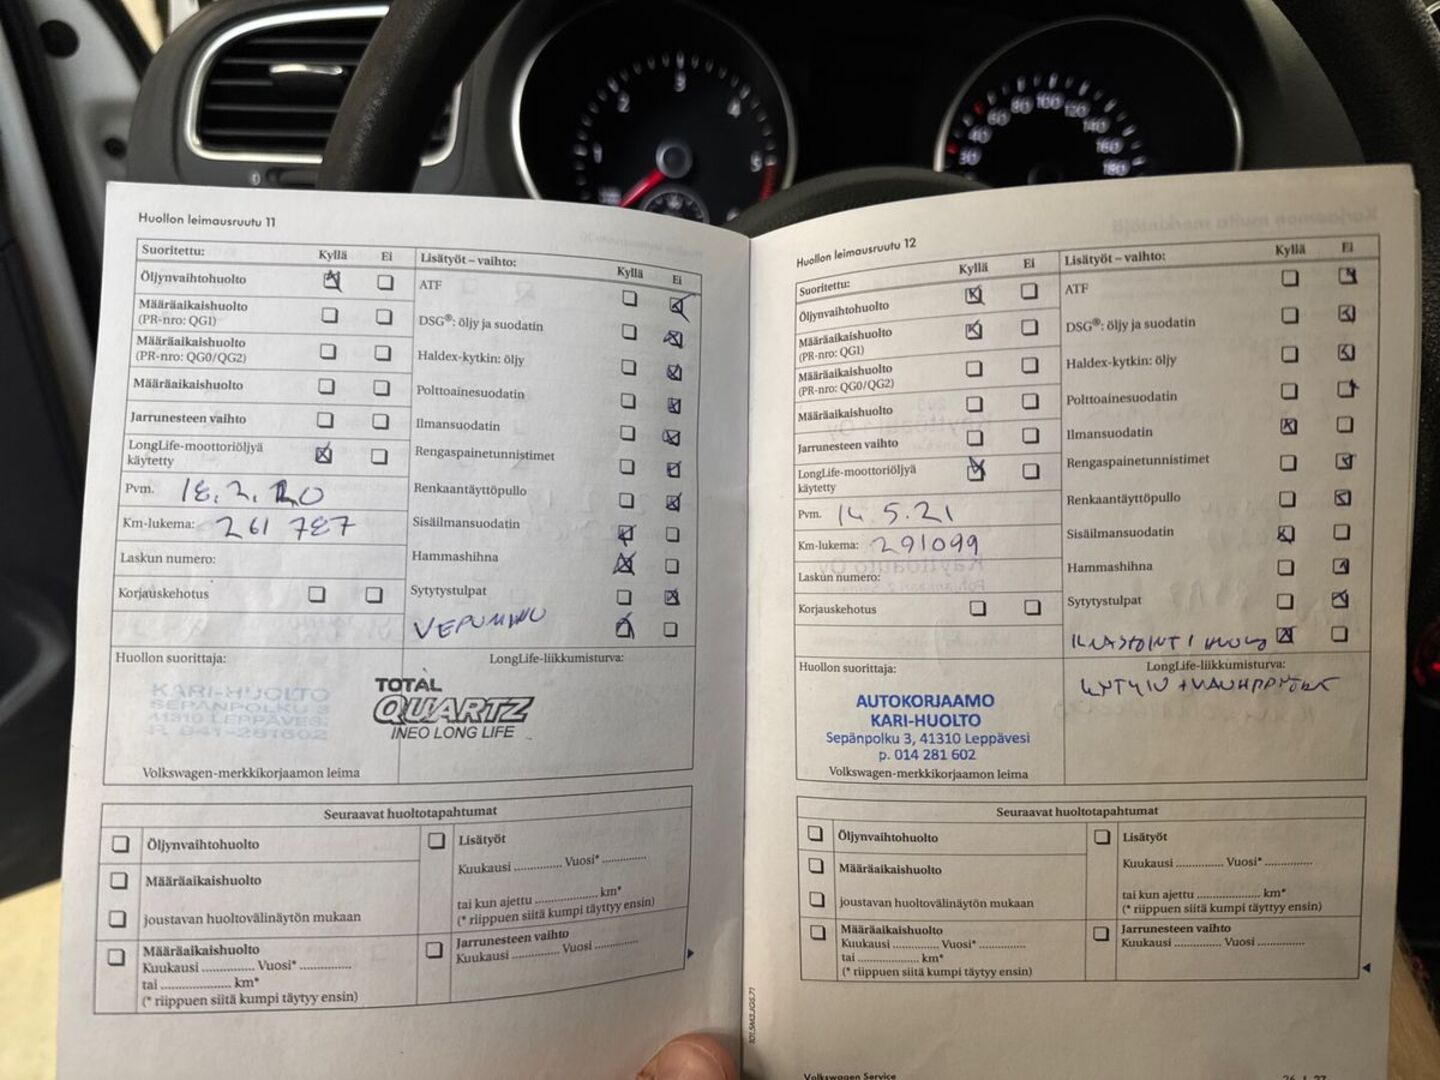 1
2
3
4
5
30
40
60
80
100
120
140
160
180
Huollon leimausruutu 11
Suoritettu: Kyllä Ei
Öljynvaihtohuolto
Määräaikaishuolto
(PR-nro: QG1)
Määräaikaishuolto
(PR-nro: QG0/QG2)
Määräaikaishuolto
Jarrunesteen vaihto
LongLife-moottoriöljyä
käytetty
Pvm. 18.2.20
Km-lukema: 261 787
Laskun numero:
Korjauskehotus
Lisätyöt – vaihto: Kyllä Ei
ATF
DSG®: öljy ja suodatin
Haldex-kytkin: öljy
Polttoainesuodatin
Ilmansuodatin
Rengaspainetunnistimet
Renkaantäyttöpullo
Sisäilmansuodatin
Hammashihna
Sytytystulpat
Huollon suorittaja:
KARI-HUOLTO
SEPÄNPOLKU 3
41310 LEPPÄVESI
P. 041-281602
Volkswagen-merkkikorjaamon leima
LongLife-liikkumisturva:
TOTAL
QUARTZ
INEO LONG LIFE
Seuraavat huoltotapahtumat
Öljynvaihtohuolto
Määräaikaishuolto
joustavan huoltovälinäytön mukaan
Määräaikaishuolto
Kuukausi .............. Vuosi* ..............
tai ................... km*
(* riippuen siitä kumpi täytyy ensin)
Lisätyöt
Kuukausi .............. Vuosi* ..............
tai kun ajettu ................... km*
(* riippuen siitä kumpi täyttyy ensin)
Jarrunesteen vaihto
Kuukausi .............. Vuosi ..............
101.5M3.JG5.71
Huollon leimausruutu 12
Suoritettu: Kyllä Ei
Öljynvaihtohuolto
Määräaikaishuolto
(PR-nro: QG1)
Määräaikaishuolto
(PR-nro: QG0/QG2)
Määräaikaishuolto
Jarrunesteen vaihto
LongLife-moottoriöljyä
käytetty
Pvm. 14.5.21
Km-lukema: 291099
Laskun numero:
Korjauskehotus
Lisätyöt – vaihto: Kyllä Ei
ATF
DSG®: öljy ja suodatin
Haldex-kytkin: öljy
Polttoainesuodatin
Ilmansuodatin
Rengaspainetunnistimet
Renkaantäyttöpullo
Sisäilmansuodatin
Hammashihna
Sytytystulpat
Huollon suorittaja:
AUTOKORJAAMO
KARI-HUOLTO
Sepänpolku 3, 41310 Leppävesi
p. 014 281 602
Volkswagen-merkkikorjaamon leima
LongLife-liikkumisturva:
Seuraavat huoltotapahtumat
Öljynvaihtohuolto
Määräaikaishuolto
joustavan huoltovälinäytön mukaan
Määräaikaishuolto
Kuukausi .............. Vuosi* ..............
tai ................... km*
(* riippuen siitä kumpi täytyy ensin)
Lisätyöt
Kuukausi .............. Vuosi* ..............
tai kun ajettu ................... km*
(* riippuen siitä kumpi täyttyy ensin)
Jarrunesteen vaihto
Kuukausi .............. Vuosi ..............
Volkswagen Service